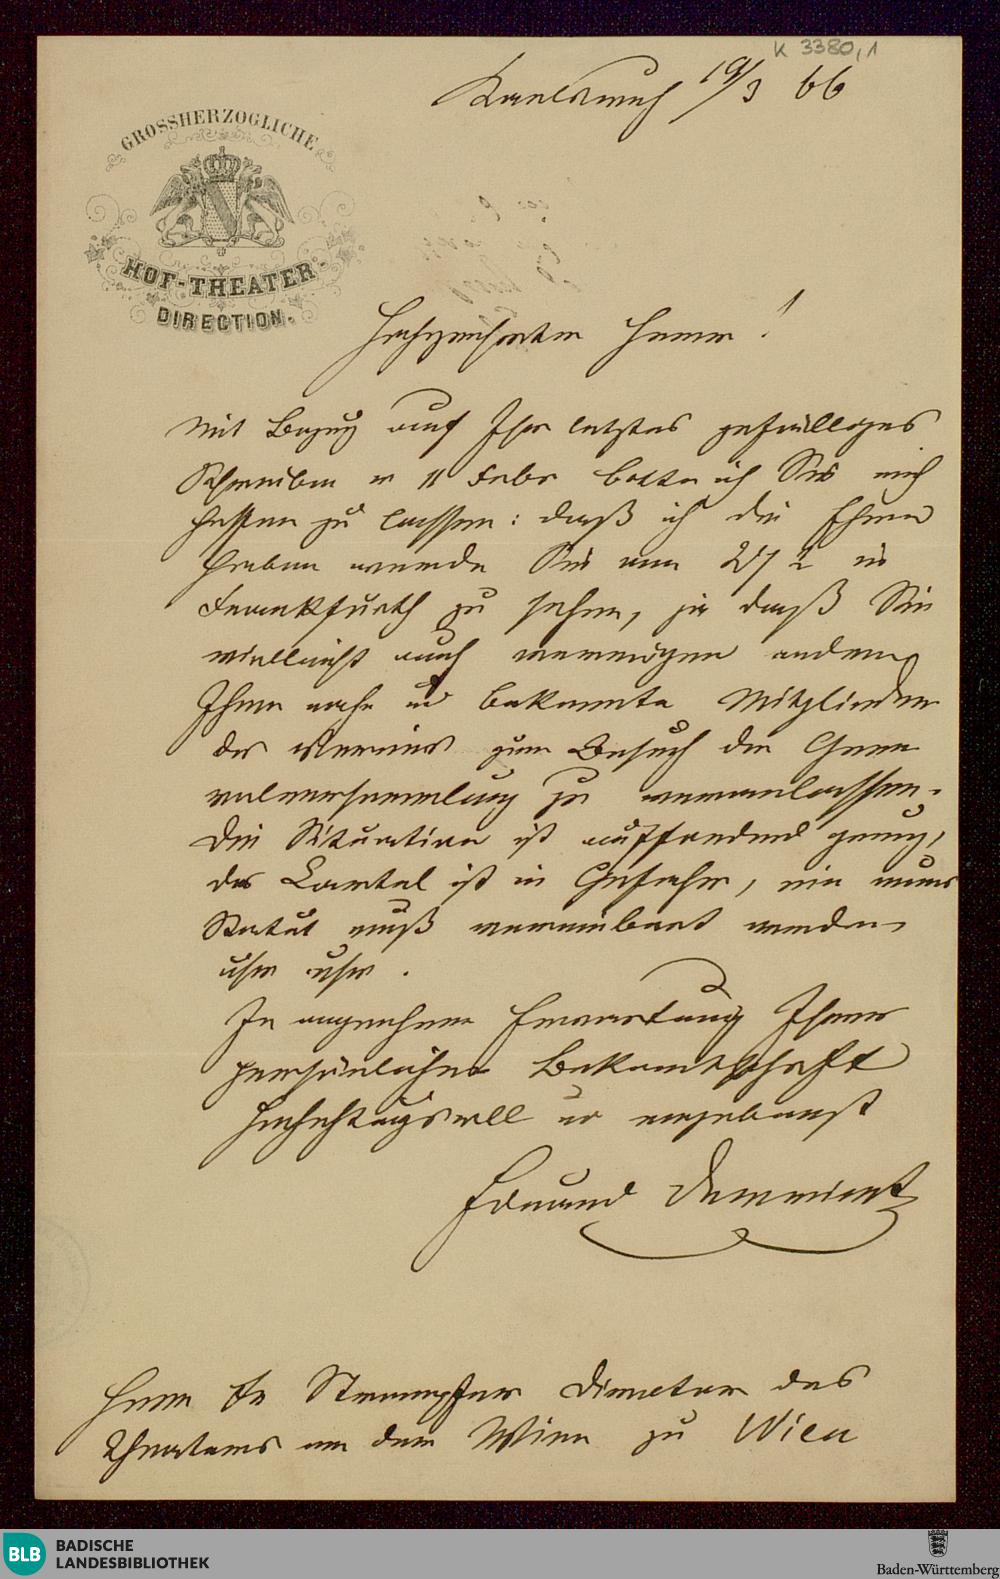 K 3380,1
Karlsruh 19/3 66
GROSSHERZOGLICHE
HOF-THEATER-
DIRECTION.
Hochgeehrter Herr!
Mit Bezug auf Ihr letztes gefälliges
Schreiben v 11 Febr bitte ich Sie mich
hoffen zu lassen: daß ich die Ehre
haben werde Sie am in
Frankfurth zu sehen, ja daß Sie
vielleicht auch vermögen andere
Ihnen nahe u bekannte Mitglieder
des Vereins zum Besuch der Gene
ralversammlung zu veranlassen.
Die Situation ist auffordernd genug,
das Cartel ist in Gefahr, ein neues
Statut muß vereinbart werden
usw usw.
In angenehmer Erwartung Ihrer
persönlichen Bekanntschaft
hochachtungsvoll u ergebenst
Eduard Devrient
Herrn Fr Strampfer Director des
Theaters an der Wien zu Wien
BLB BADISCHE
LANDESBIBLIOTHEK
Baden-Württemberg